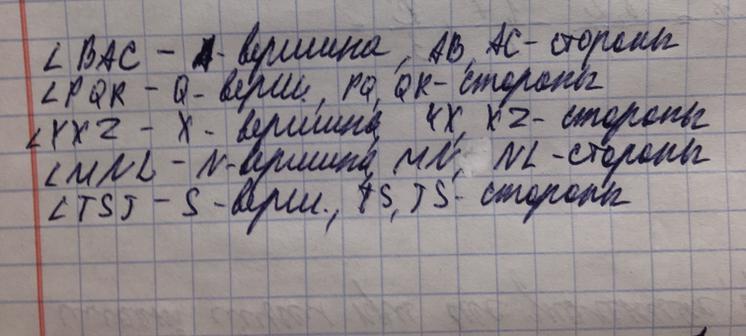 ∠BAC - A - вершина, AB, AC - стороны
∠PQR - Q - верш., PQ, QR - стороны
∠YXZ - X - вершина, YX, XZ - стороны
∠MNL - N - вершина, MN, NL - стороны
∠TSJ - S - верш., TS, JS - стороны